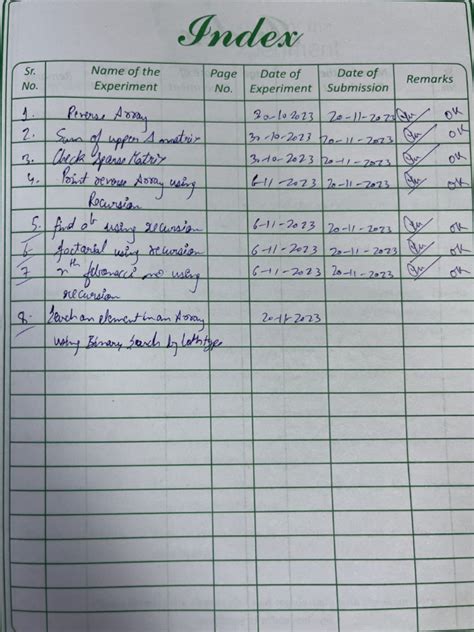 Index
Sr. No. Name of the Experiment Page No. Date of Experiment Date of Submission Remarks
1. Reverse Array 30-10-2023 20-11-2023 OK
2. Sum of upper Δ matrix 30-10-2023 20-11-2023 OK
3. Check Sparse Matrix 30-10-2023 20-11-2023 OK
4. Print reverse Array using 6-11-2023 20-11-2023 OK
Recursion
5. find a^b using recursion 6-11-2023 20-11-2023 OK
6 factorial using recursion 6-11-2023 20-11-2023 OK
7 nth fibonacci no using 6-11-2023 20-11-2023 OK
recursion
8. Search an element in an Array 20-11-2023
using Binary Search by both type